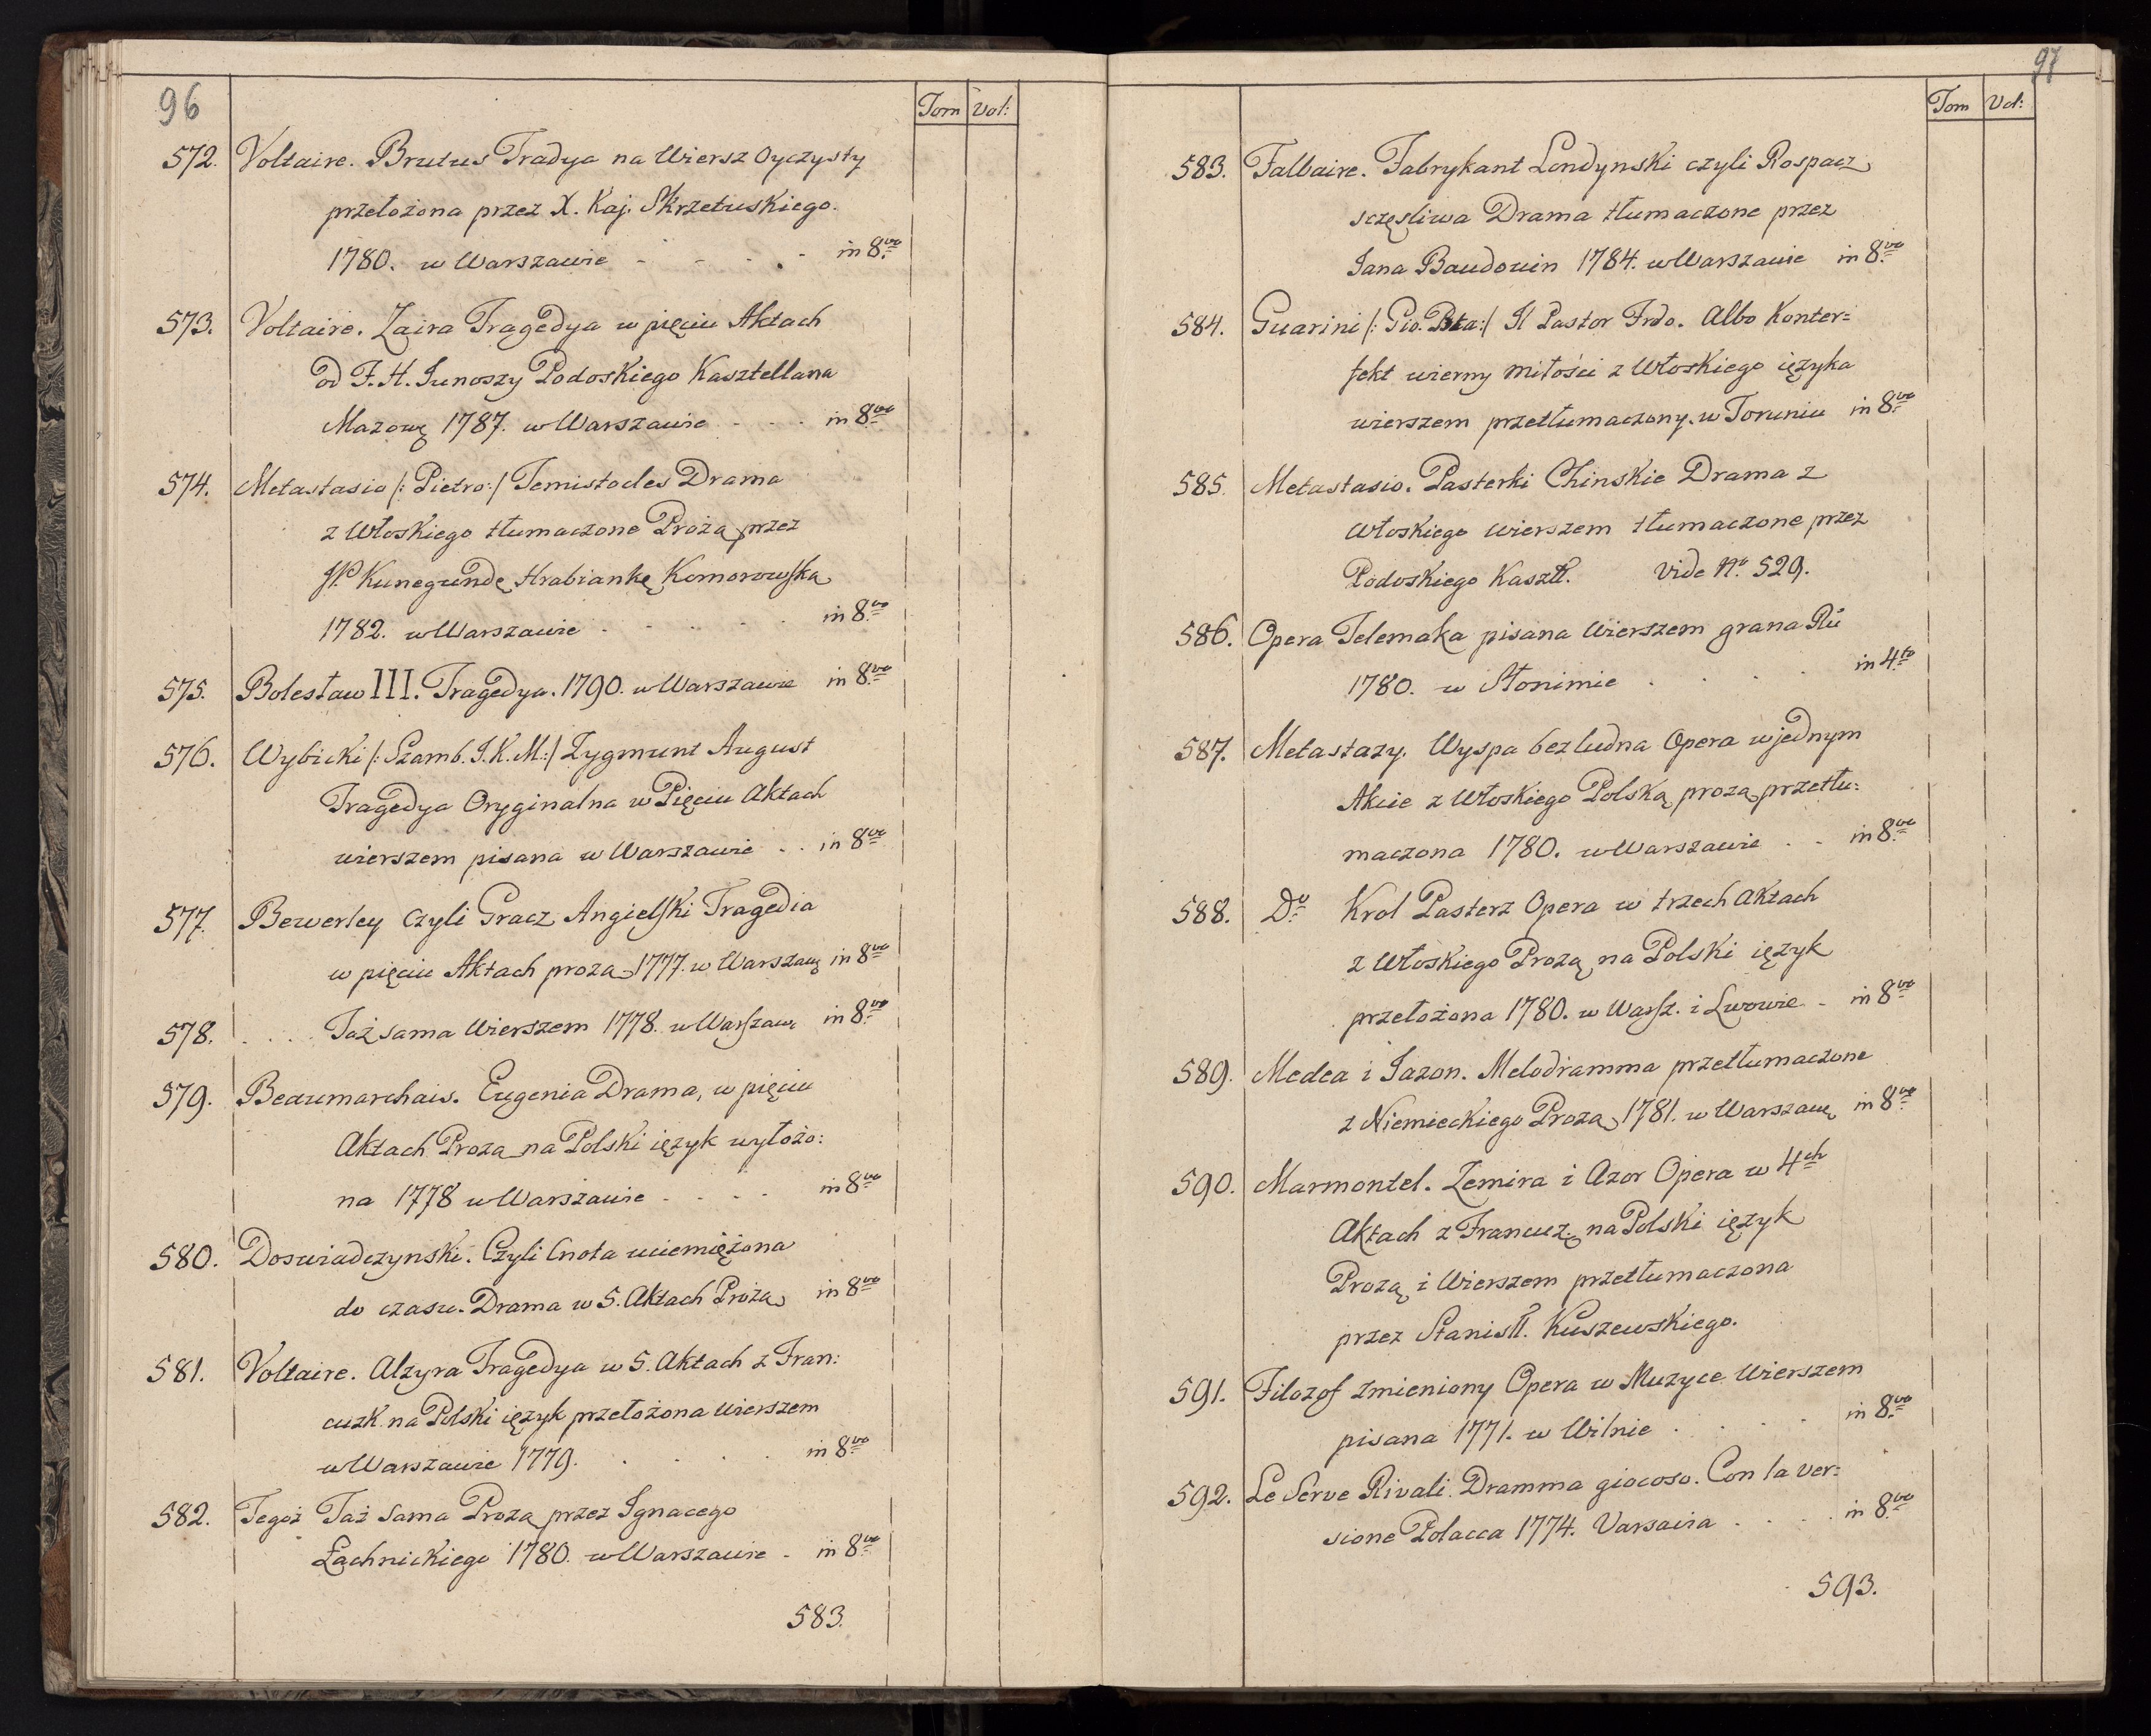 96
Tom Vol:
572. Voltaire. Brutus Tradya na Wiersz Oyczysty
przełożona przez X. Kaj. Skrzetuskiego.
1780. w Warszawie - - - - in 8vo
573. Voltaire. Zaira Tragedya w pięciu Aktach
od J. H. Junoszy Podoskiego Kasztellana
Mazow. 1787. w Warszawie - - - in 8vo
574. Metastasio /: Pietro:/ Temistocles Drama
z Włoskiego tłumaczone Prozą przez
JP. Kunegundę Hrabiankę Komorowską
1782. w Warszawie - - - - - in 8vo
575. Bolesław III. Tragedya. 1790. w Warszawie in 8vo
576. Wybicki /: Szamb. J. K. M:/ Zygmunt August
Tragedya Oryginalna w Pięciu Aktach
wierszem pisana w Warszawie . . in 8vo
577. Bewerley czyli Gracz Angielski Tragedia
w pięciu Aktach prozą 1777. w Warszawę in 8vo
578. . . . Taż sama Wierszem 1778. w Warszaw. in 8vo
579. Beaumarchais. Eugenia Drama, w pięciu
Aktach Prozą na Polski ięzyk wyłożo:
na 1778 w Warszawie - - - - in 8vo
580. Doswiadczynski. Czyli Cnota uciemiężona
do czasu. Drama w 5. Aktach Prozą in 8vo
581. Voltaire. Alzyra Tragedya w 5. Aktach z Fran:
cuzk. na Polski ięzyk przełożona Wierszem
w Warszawie 1779. . . . . in 8vo
582. Tegoż Taż Sama Prozą przez Ignacego
Łachnickiego 1780. w Warszawie - in 8vo
583.
97
Tom Vol:
583. Falbaire. Fabrykant Londynski czyli Rospacz
sczęsliwa Drama tłumaczone przez
Jana Baudouin 1784. w Warszawie in 8vo
584. Guarini /: Gio. Bta:/ Il Pastor Frdo. Albo Konter=
fekt wierny miłości z Włoskiego ięzyka
wierszem przetłumaczony. w Toruniu in 8vo
585. Metastasio. Pasterki Chinskie Drama z
Włoskiego wierszem tłumaczone przez
Podoskiego Kasztl. Vide No. 529.
586. Opera Telemaka pisana Wierszem grana Rŭ
1780. w Słonimie . . . . in 4to
587. Metastazy. Wyspa bezludna Opera w jednym
Akcie z Włoskiego Polską prozą przetłu:
maczona 1780. w Warszawie . . in 8vo
588. Do Krol Pasterz Opera w trzech Aktach
z Włoskiego Prozą na Polski ięzyk
przełożona 1780. w Warsz. i Lwowie - in 8vo
589. Medea i Jazon. Melodramma przetłumaczone
z Niemieckiego Prozą 1781. w Warszawę in 8vo
590. Marmontel. Zemira i Azor Opera w 4ch
Aktach z Francuz. na Polski ięzyk
Prozą i Wierszem przetłumaczona
przez Stanisł. Kuszewskiego.
591. Filozof zmieniony Opera w Muzyce Wierszem
pisana 1771. w Wilnie . . . . in 8vo
592. Le Serve Rivali. Dramma giocoso. Con la ver=
sione Polacca 1774. Varsavia . . . . in 8vo
593.